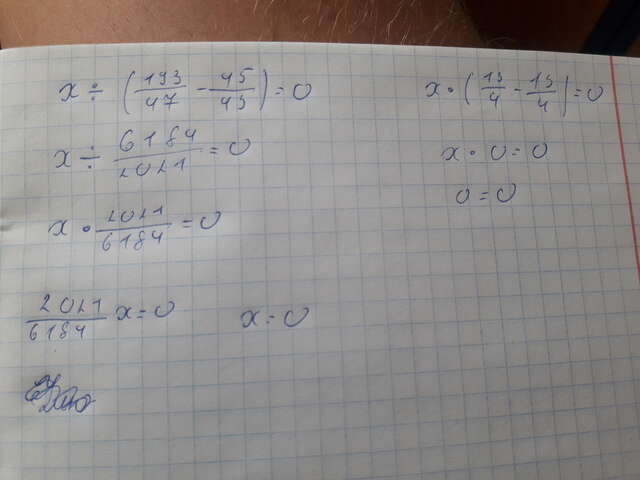 x ÷ (193/47 - 45/43) = 0
x ÷ 6184/2021 = 0
x • 2021/6184 = 0
2021/6184 x = 0
x = 0
x • (13/4 - 13/4) = 0
x • 0 = 0
0 = 0